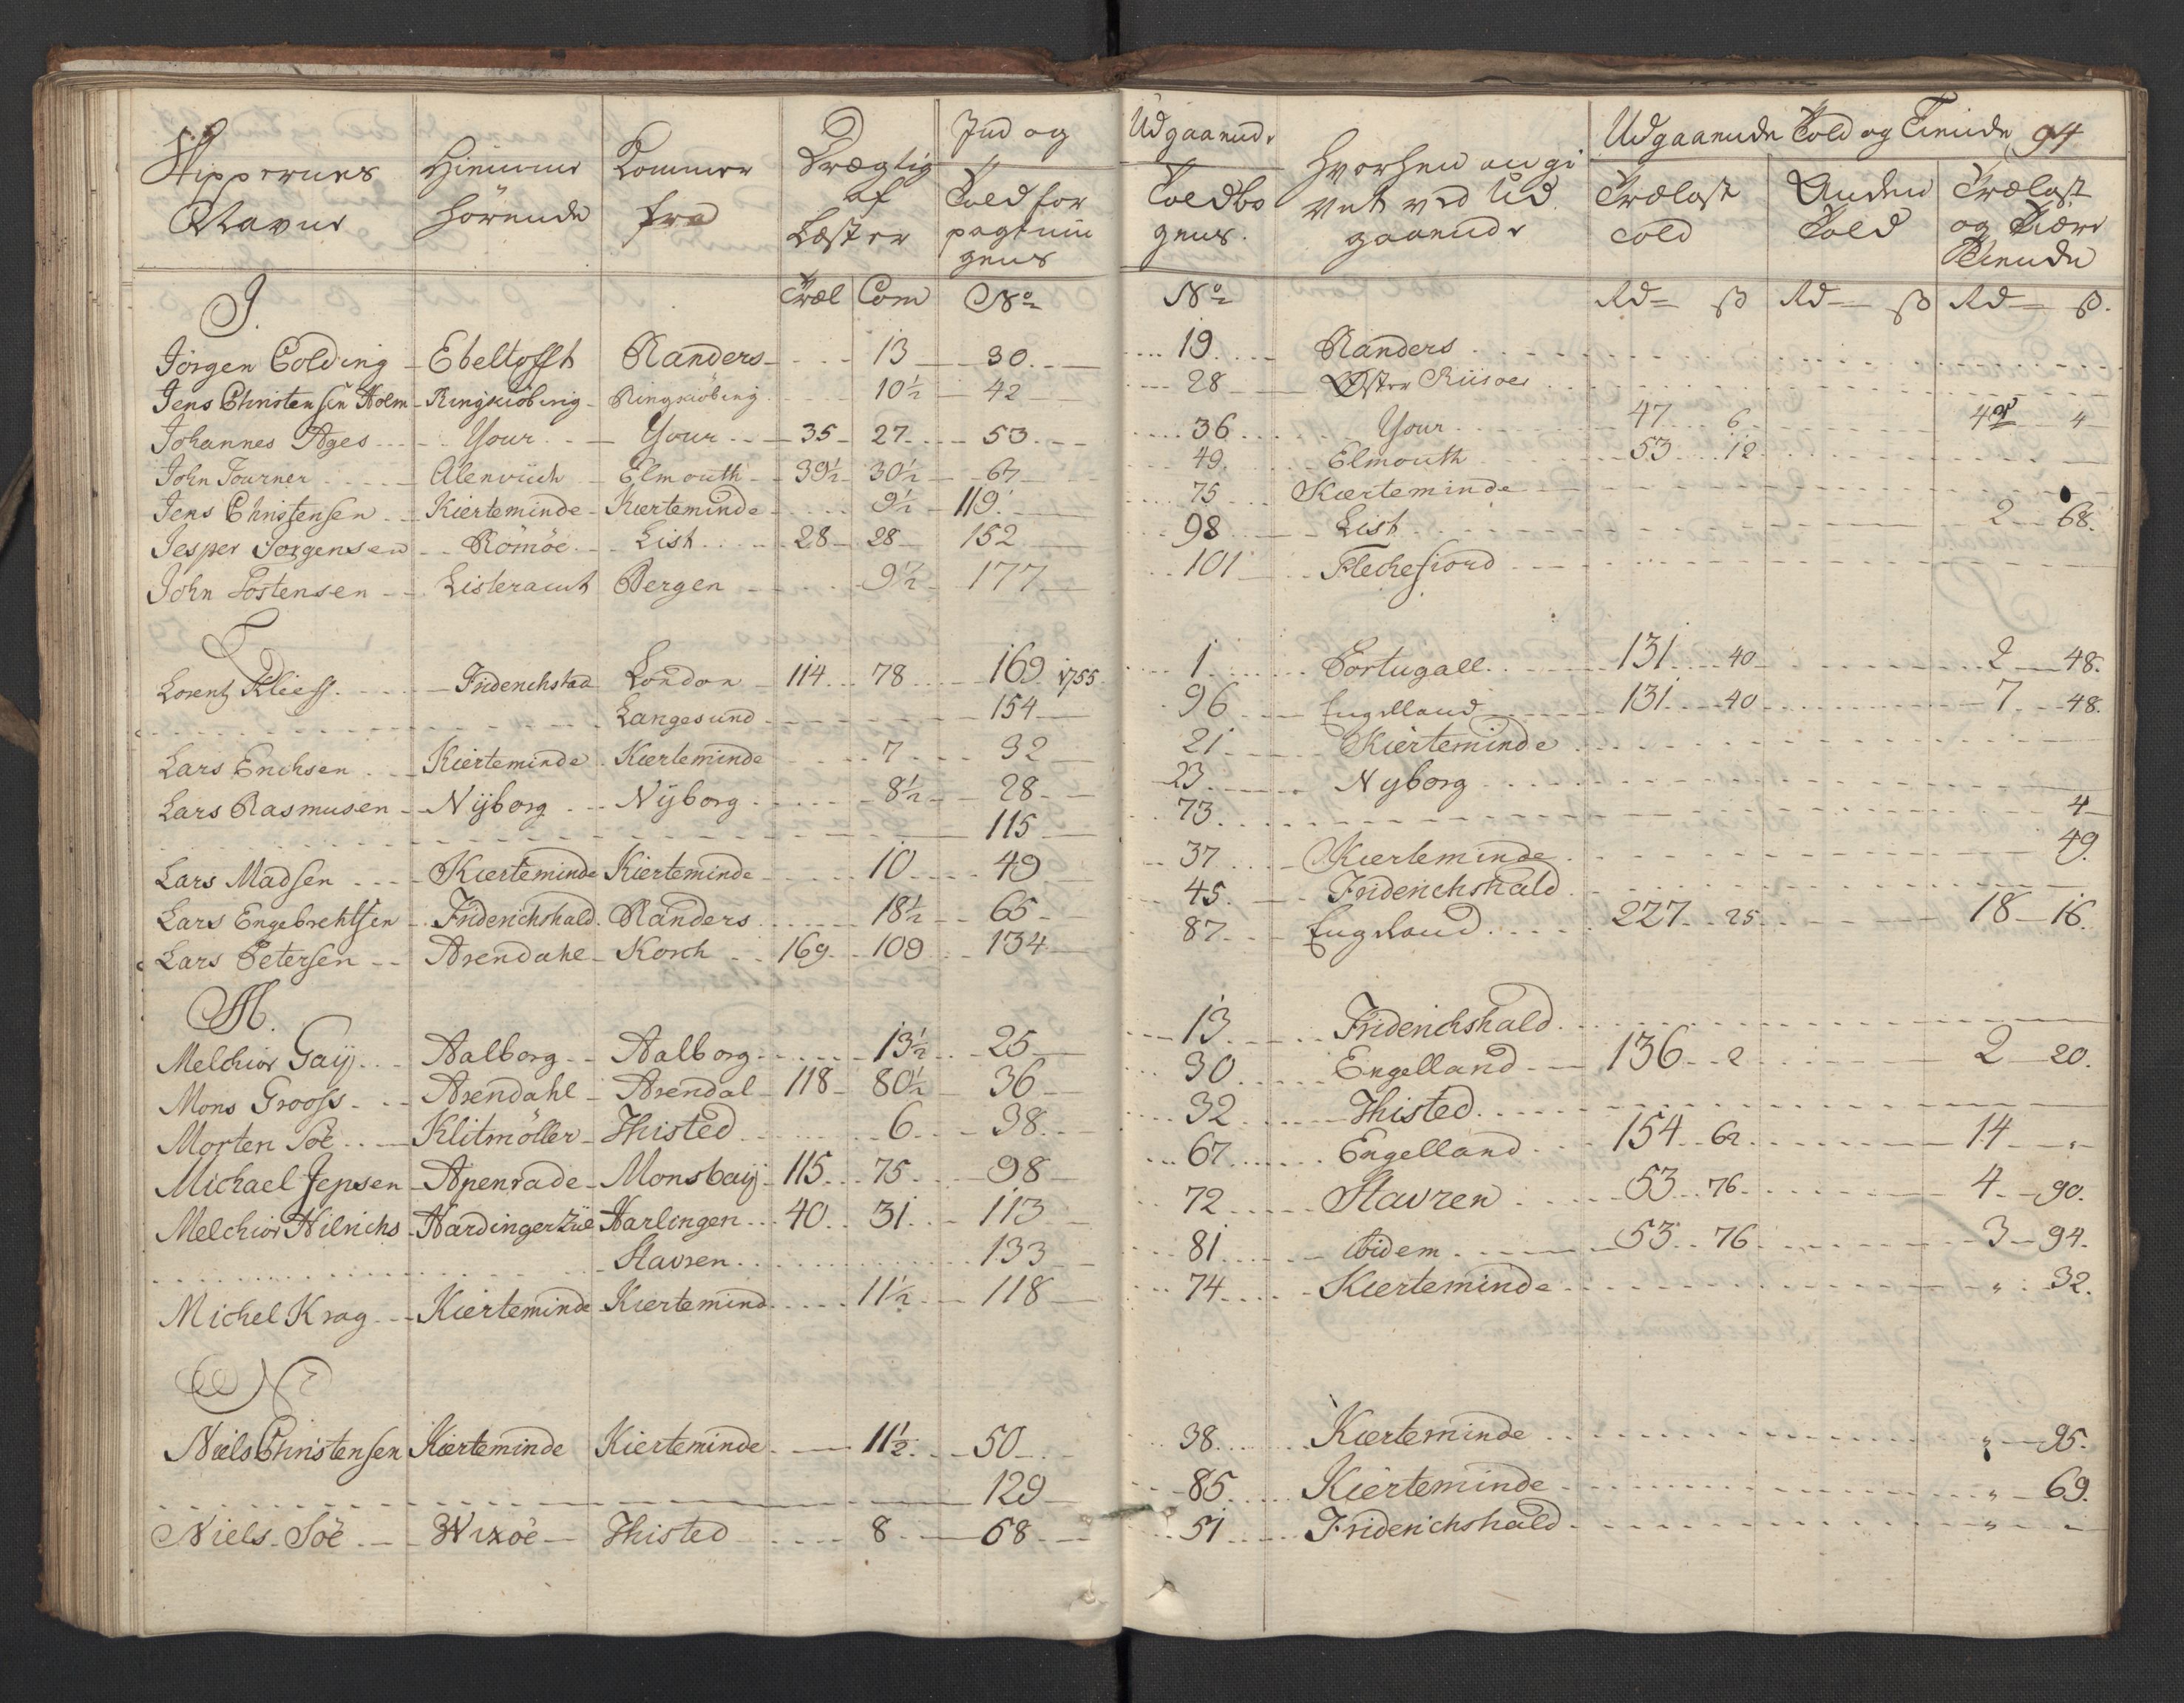 Skippernes Navne | Hiemme hörende | Kommer fra | Drægtig af Læster | Ind og | Udgaaende | hvorhen angi vet ved Ud gaaende | Udgaaende Told og Tiende 94
Toldfor pagtnin gens | Toldbo gens. | Trælast told | Anden Told | Trælast og Tiære Tiende
Træl | Com | No | No | Rd ß | Rd ß | Rd ß.
J.
Jörgen Colding | Ebeltofft | Randers | 13 | 30 | 19 | Randers
Jens Christensen Holm | Ringkiöbing | Ringkiöbing | 10½ | 42 | 28 | Öster Riisöer
Johannes Ages | Your | Your | 35 | 27 | 53 | 36 | Your | 47 6 | 4
John Tourner | Alenvüch | Elmouth | 39½ | 30½ | 67 | 49 | Elmouth | 53 12
Jens Christensen | Kierteminde | Kierteminde | 9½ | 119 | 75 | Kierteminde
Jesper Jörgensen | Römöe | List | 28 | 28 | 152 | 98 | List | 2 68.
John Tostensen | Listeramt | Bergen | 9½ | 177 | 101 | Flechefiord
L
Lorentz Kliess | Friderichstad | London | 114 | 78 | 169 1755 | 1 | Portugall | 131 40 | 2 48.
Langesund | 154 | 96 | Engelland | 131 40 | 7 48.
Lars Erichsen | Kierteminde | Kierteminde | 7 | 32 | 21 | Kierteminde
Lars Rasmusen | Nÿborg | Nÿborg | 8½ | 28 | 23 | Nyborg
115 | 73 | 4
Lars Madsen | Kierteminde | Kierteminde | 10 | 49 | 37 | Kierteminde | 49.
Lars Engebrehtsen | Friderichshald | Randers | 18½ | 65 | 45 | Friderichshald
Lars Petersen | Arendahl | Korch | 169 | 109 | 134 | 87 | England | 227 25 | 18 16.
M.
Melchior Gaÿ | Aalborg | Aalborg | 13½ | 25 | 13 | Friderichshald
Mons Grooss | Arendahl | Arendal | 118 | 80½ | 36 | 30 | Engelland | 136 2 | 2 20.
Morten Söe | Klitmöller | Thisted | 6 | 38 | 32 | Thisted
Michael Jepsen | Apenrade | Monsbaÿ | 115 | 75 | 98 | 67 | Engelland | 154 62 | 14 „
Melchior Hilrichs | Hardingerzüe | Harlingen | 40 | 31 | 113 | 72 | Stavren | 53 76 | 4 90.
Stavren | 133 | 81 | ibidem | 53 76 | 3 94.
Michel Krag | Kierteminde | Kiertemind | 11½ | 118 | 74 | Kierteminde | „ 32.
N
Niels Christensen | Kierteminde | Kierteminde | 11½ | 50 | 38 | Kierteminde | „ 95.
129 | 85 | Kierteminde | „ 69.
Niels Söe | Wixöe | Thisted | 8 | 68 | 51 | Friderichshald | „